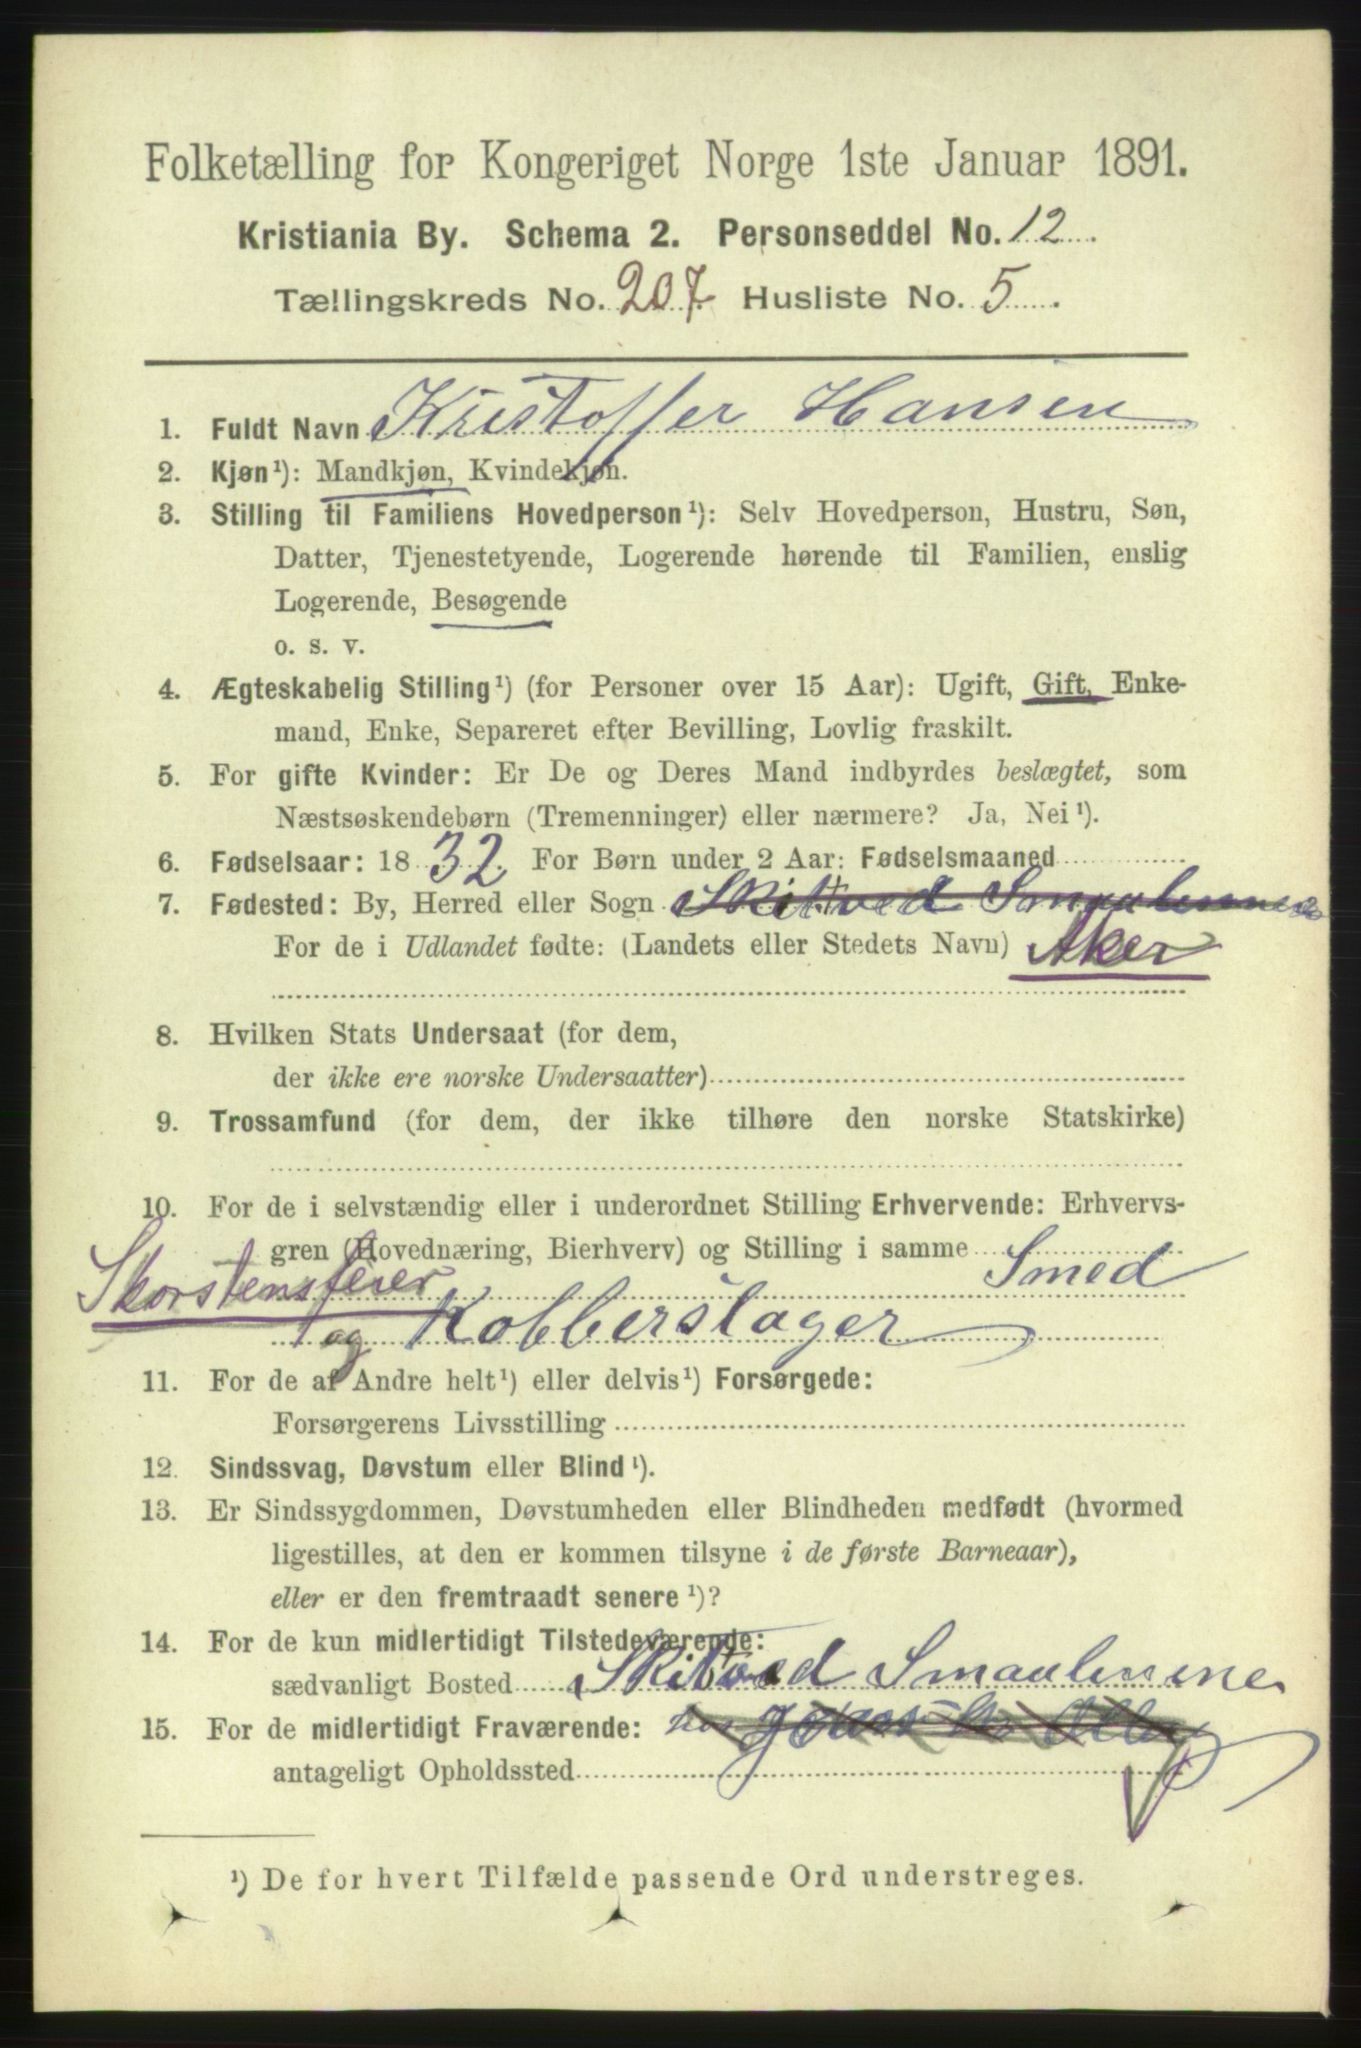 Folketælling for Kongeriget Norge 1ste Januar 1891.
Kristiania By. Schema 2. Personseddel No. 12.
Tællingskreds No. 207 Husliste No. 5.
1. Fuldt Navn Kristoffer Hansen
2. Kjøn¹): Mandkjøn, Kvindekjøn.
3. Stilling til Familiens Hovedperson¹): Selv Hovedperson, Hustru, Søn,
Datter, Tjenestetyende, Logerende hørende til Familien, enslig
Logerende, Besøgende
o. s. v.
4. Ægteskabelig Stilling¹) (for Personer over 15 Aar): Ugift, Gift, Enke-
mand, Enke, Separeret efter Bevilling, Lovlig fraskilt.
5. For gifte Kvinder: Er De og Deres Mand indbyrdes beslægtet, som
Næstsøskendebørn (Tremenninger) eller nærmere? Ja, Nei¹).
6. Fødselsaar: 1832. For Børn under 2 Aar: Fødselsmaaned
7. Fødested: By, Herred eller Sogn Skitved Smaalenene
For de i Udlandet fødte: (Landets eller Stedets Navn) Aker
8. Hvilken Stats Undersaat (for dem,
der ikke ere norske Undersaatter)
9. Trossamfund (for dem, der ikke tilhøre den norske Statskirke)
10. For de i selvstændig eller i underordnet Stilling Erhvervende: Erhvervs-
gren (Hovednæring, Bierhverv) og Stilling i samme Smed
Skorstensfeier
og Kobberslager
11. For de af Andre helt¹) eller delvis¹) Forsørgede:
Forsørgerens Livsstilling
12. Sindssvag, Døvstum eller Blind¹).
13. Er Sindssygdommen, Døvstumheden eller Blindheden medfødt (hvormed
ligestilles, at den er kommen tilsyne i de første Barneaar),
eller er den fremtraadt senere¹)?
14. For de kun midlertidigt Tilstedeværende:
sædvanligt Bosted Skitved Smaalenene
15. For de midlertidigt Fraværende:
antageligt Opholdssted
¹) De for hvert Tilfælde passende Ord understreges.